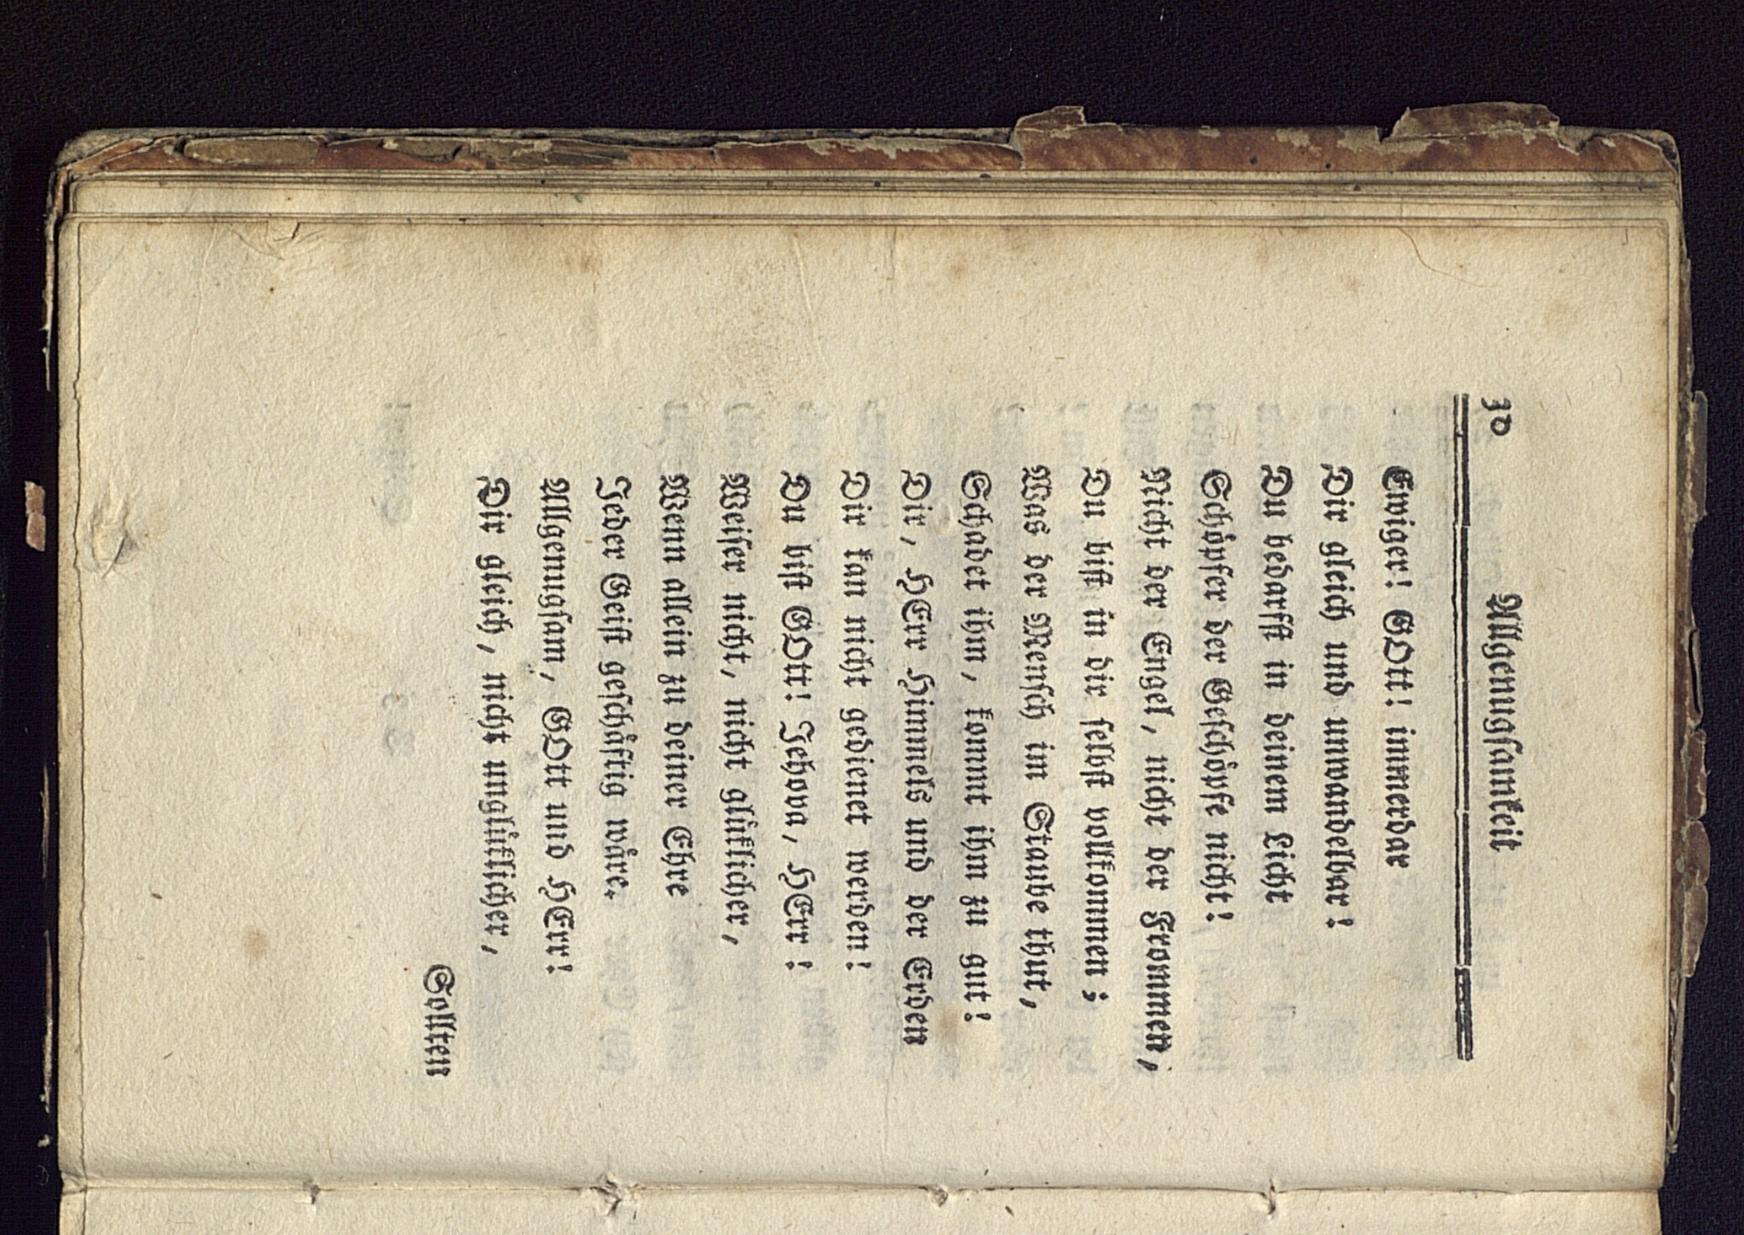 30 Allgenugsamkeit
Ewiger! GOtt! immerdar
Dir gleich und unwandelbar!
Du bedarfft in deinem Licht
Schöpfer der Geschöpfe nicht!
Nicht der Engel, nicht der Frommen,
Du bist in dir selbst vollkommen;
Was der Mensch im Staube thut,
Schadet ihm, kommt ihm zu gut!
Dir, HErr Himmels und der Erden
Dir kan nicht gedienet werden!
Du bist GOtt! Jehova, HErr!
Weiser nicht, nicht glüklicher,
Wenn allein zu deiner Ehre
Jeder Geist geschäftig wäre.
Allgenugsam, GOtt und HErr!
Dir gleich, nicht unglüklicher,
Sollten